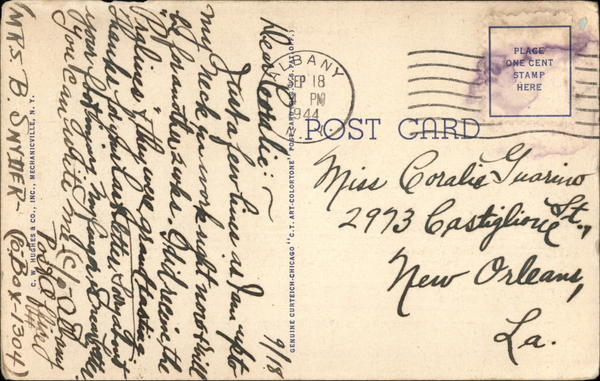 9/18
Dear Coralie: -
Just a few lines as I am up to
my neck in work right now & will
be for another 2 wks. I did receive the
"Pralines" & they were grand tasting.
Thanks for your last letter. Sorry about
your
You can write me c/o Albany
(MRS B. SNYDER -
P.O. BOX - 1304)
C. W. HUGHES & CO., INC., MECHANICVILLE, N. Y.
GENUINE CURTEICH-CHICAGO "C.T. ART-COLORTONE" POST CARD (REG. U.S. PAT. OFF.)
ALBANY
SEP 18
PM
1944
N. Y.
PLACE
ONE CENT
STAMP
HERE
POST CARD
Miss Coralie Guarino
2973 Castiglione St.,
New Orleans,
La.